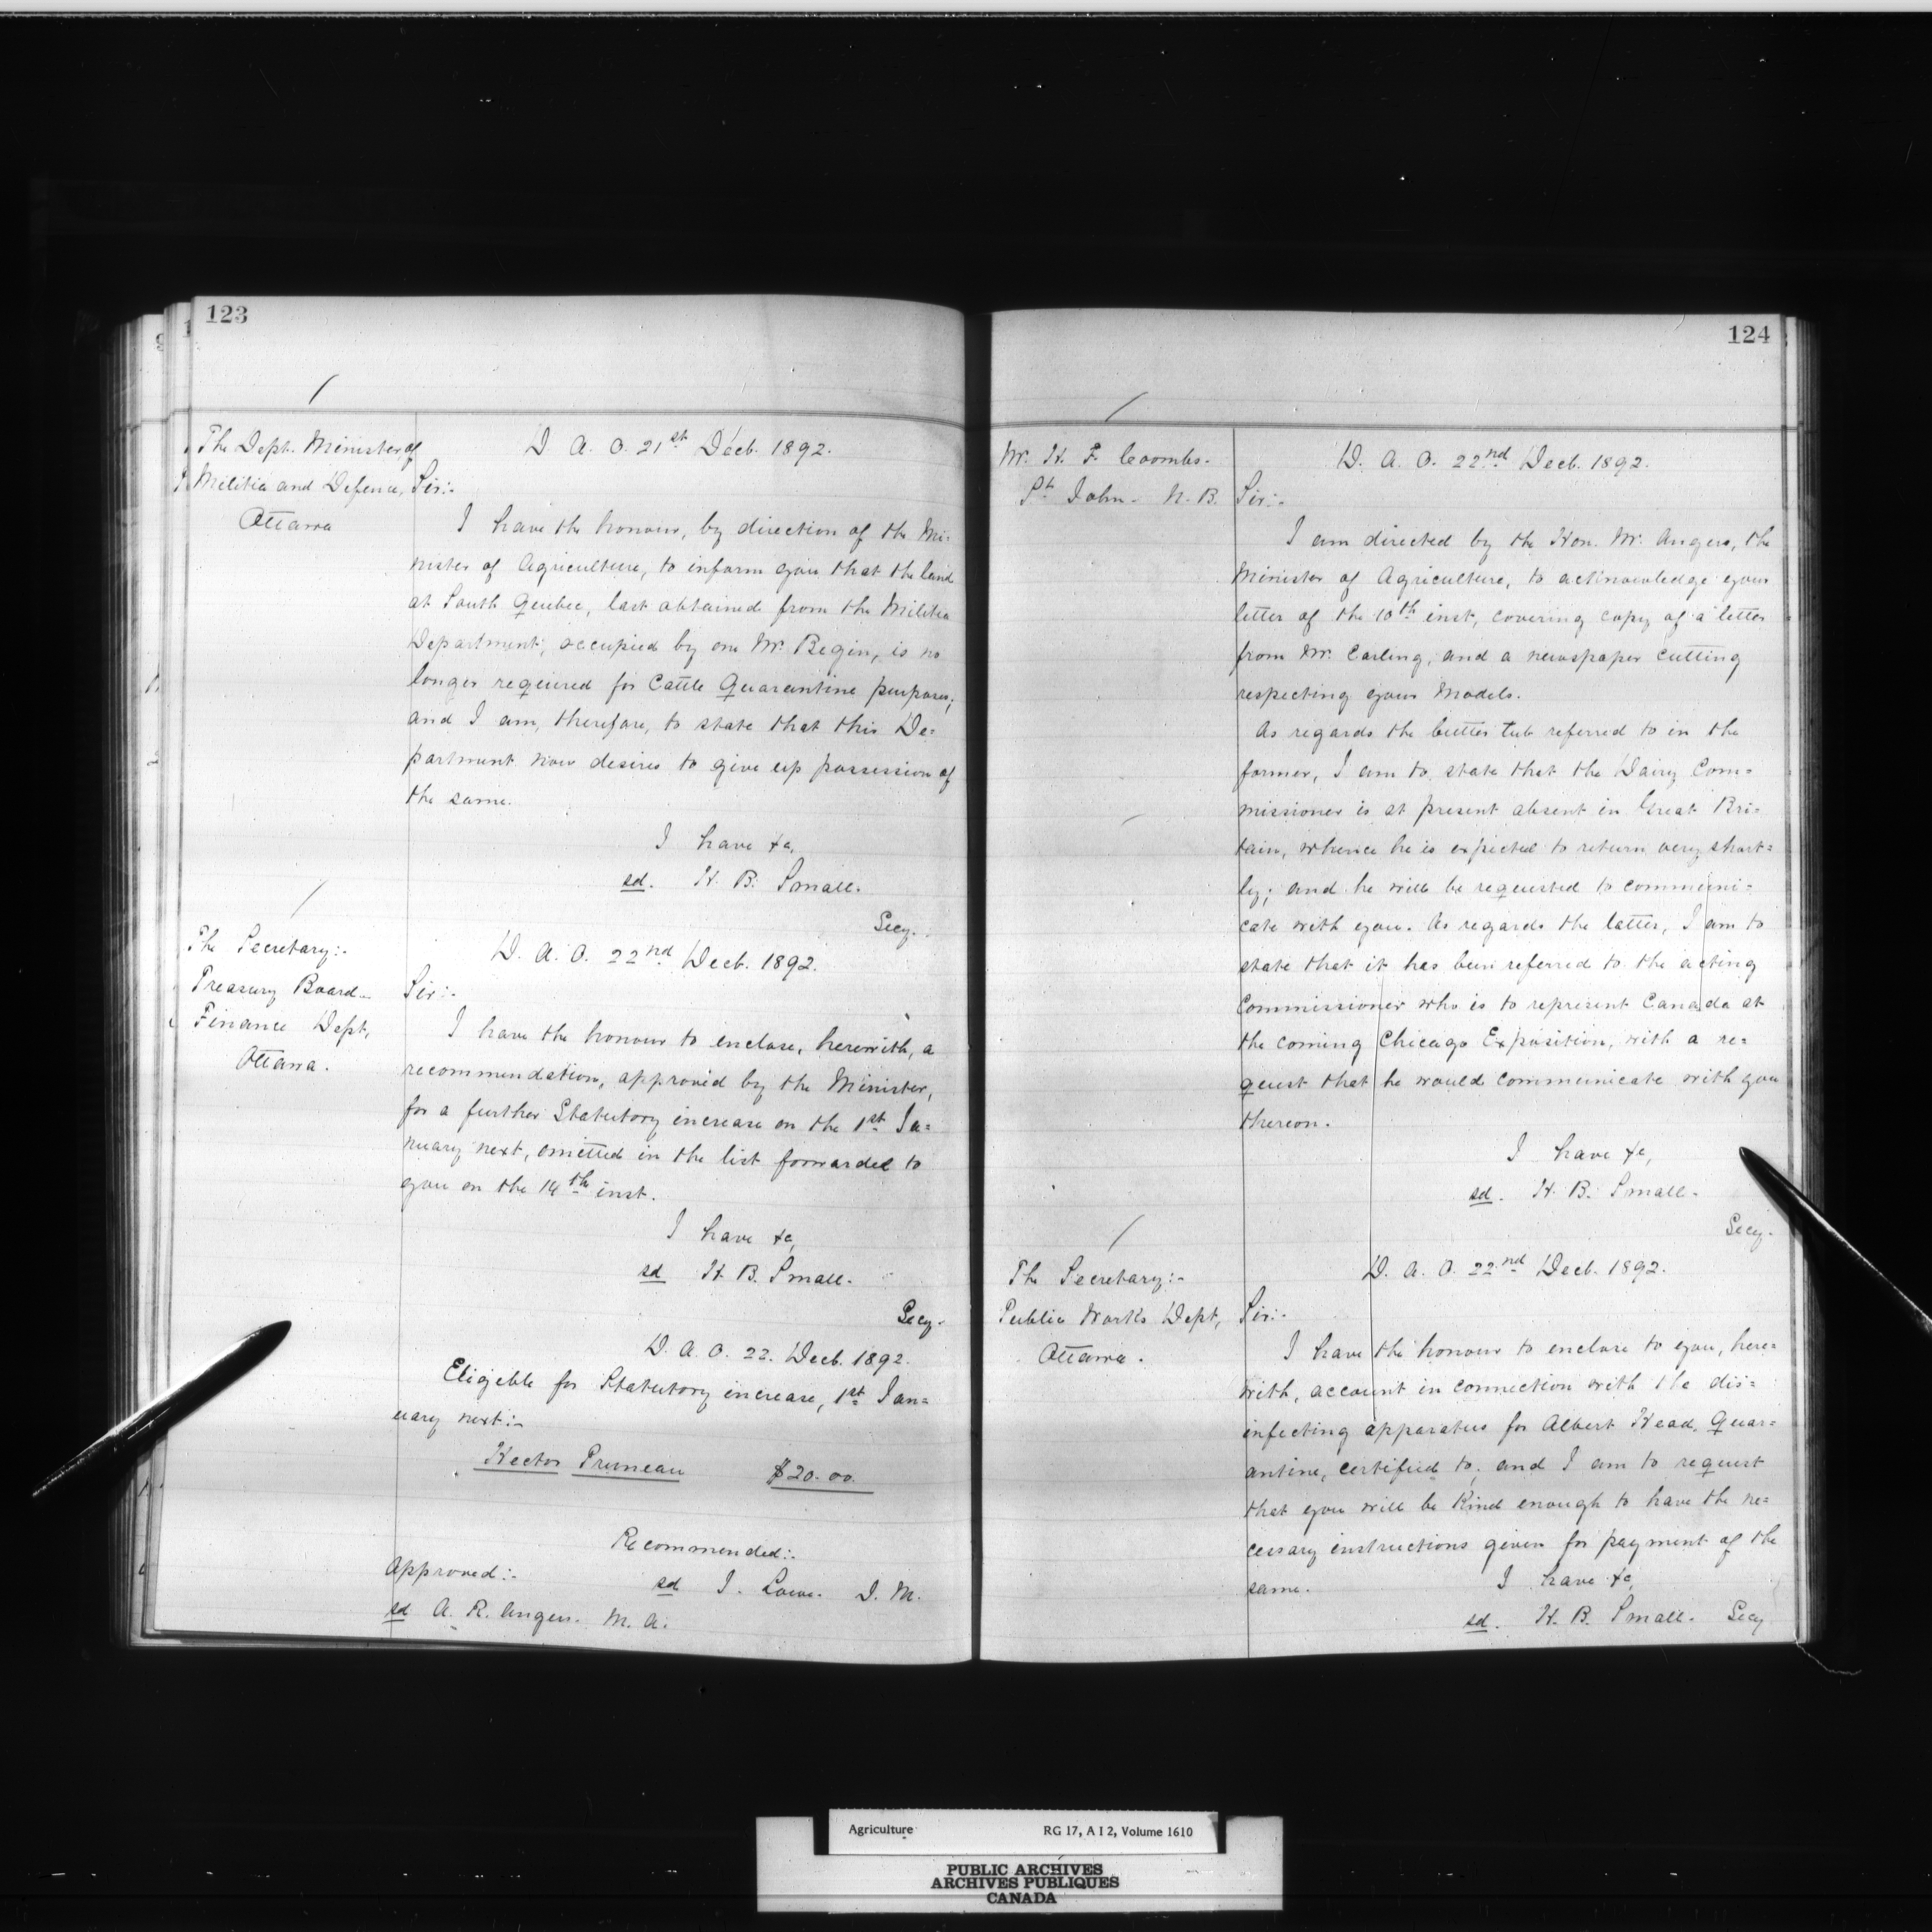 123
The Dept. Minister of
Militia and Defence,
Ottawa
D. A. O. 21st Decb. 1892.
Sir:-
I have the honour, by direction of the Mi=
nister of Agriculture, to inform you that the land
at South Quebec, last obtained from the Militia
Department, occupied by one Mr. Begin, is no
longer required for Cattle Quarantine purposes;
and I am, therefore, to state that this De=
partment now desires to give up possession of
the same.
I have &c,
sd. H. B. Small.
Secy.
The Secretary:-
Treasury Board
Finance Dept,
Ottawa.
D. A. O. 22nd Decb. 1892.
Sir:-
I have the honour to enclose, herewith, a
recommendation, approved by the Minister,
for a further Statutory increase on the 1st Ja=
nuary next, omitted in the list forwarded to
you on the 14th inst.
I have &c,
sd H. B. Small.
Secy.
D. A. O. 22. Decb. 1892.
Eligible for Statutory increase, 1st Jan=
uary next:-
Hector Pruneau $20.00
Recommended:-
sd J. Lowe. D. M.
Approved:-
sd A. R. Angers. M. A.
124
Mr. H. F. Coombs.
St. John - N. B.
D. A. O. 22nd Decb. 1892.
Sir:-
I am directed by the Hon. Mr. Angers, the
Minister of Agriculture, to acknowledge your
letter of the 10th inst, covering copy of a letter
from Mr. Carling, and a newspaper cutting
respecting your Models.
As regards the butter tub referred to in the
former, I am to state that the Dairy Com=
missioner is at present absent in Great Bri=
tain, whence he is expected to return very short=
ly; and he will be requested to communi=
cate with you. As regards the latter, I am to
state that it has been referred to the acting
Commissioner who is to represent Canada at
the coming Chicago Exposition, with a re=
quest that he would communicate with you
thereon.
I have &c,
sd. H. B. Small.
Secy.
The Secretary:-
Public Works Dept,
Ottawa.
D. A. O. 22nd Decb. 1892.
Sir:-
I have the honour to enclose to you, here=
with, account in connection with the dis=
infecting apparatus for Albert Head, Quar=
antine, certified to; and I am to request
that you will be kind enough to have the ne=
cessary instructions given for payment of the
same.
I have &c,
sd. H. B. Small. Secy
Agriculture RG 17, A I 2, Volume 1610
PUBLIC ARCHIVES
ARCHIVES PUBLIQUES
CANADA